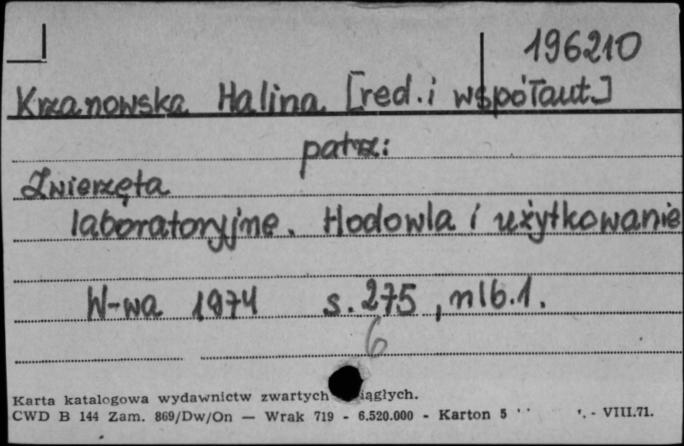 196210
Krzanowska Halina [red. i współaut.]
patrz:
Zwierzęta
laboratoryjne. Hodowla i użytkowanie
W-wa 1974 s. 275, nlb. 1.
6
Karta katalogowa wydawnictw zwartych iągłych.
CWD B 144 Zam. 869/Dw/On — Wrak 719 - 6.520.000 - Karton 5 - VIII.71.